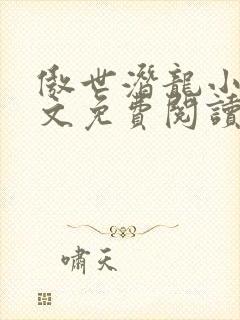 傲世潛龍小
文免費閱讀
嘯天